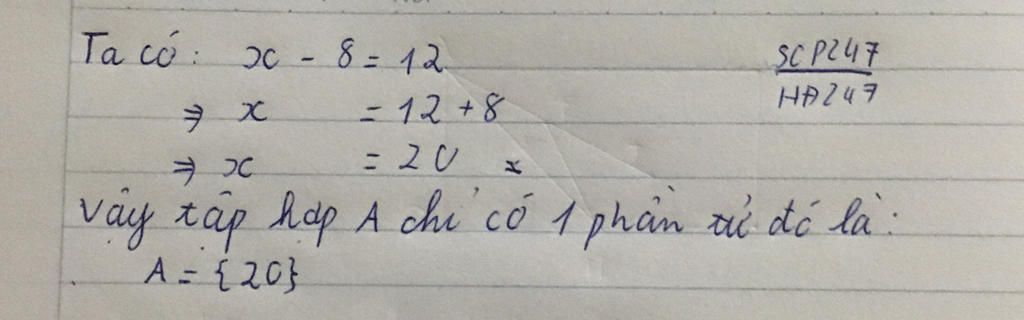 Ta có: x - 8 = 12
SCP247
HĐ247
⇒ x = 12 + 8
⇒ x = 20
Vậy tập hợp A chỉ có 1 phần tử đó là:
A = {20}